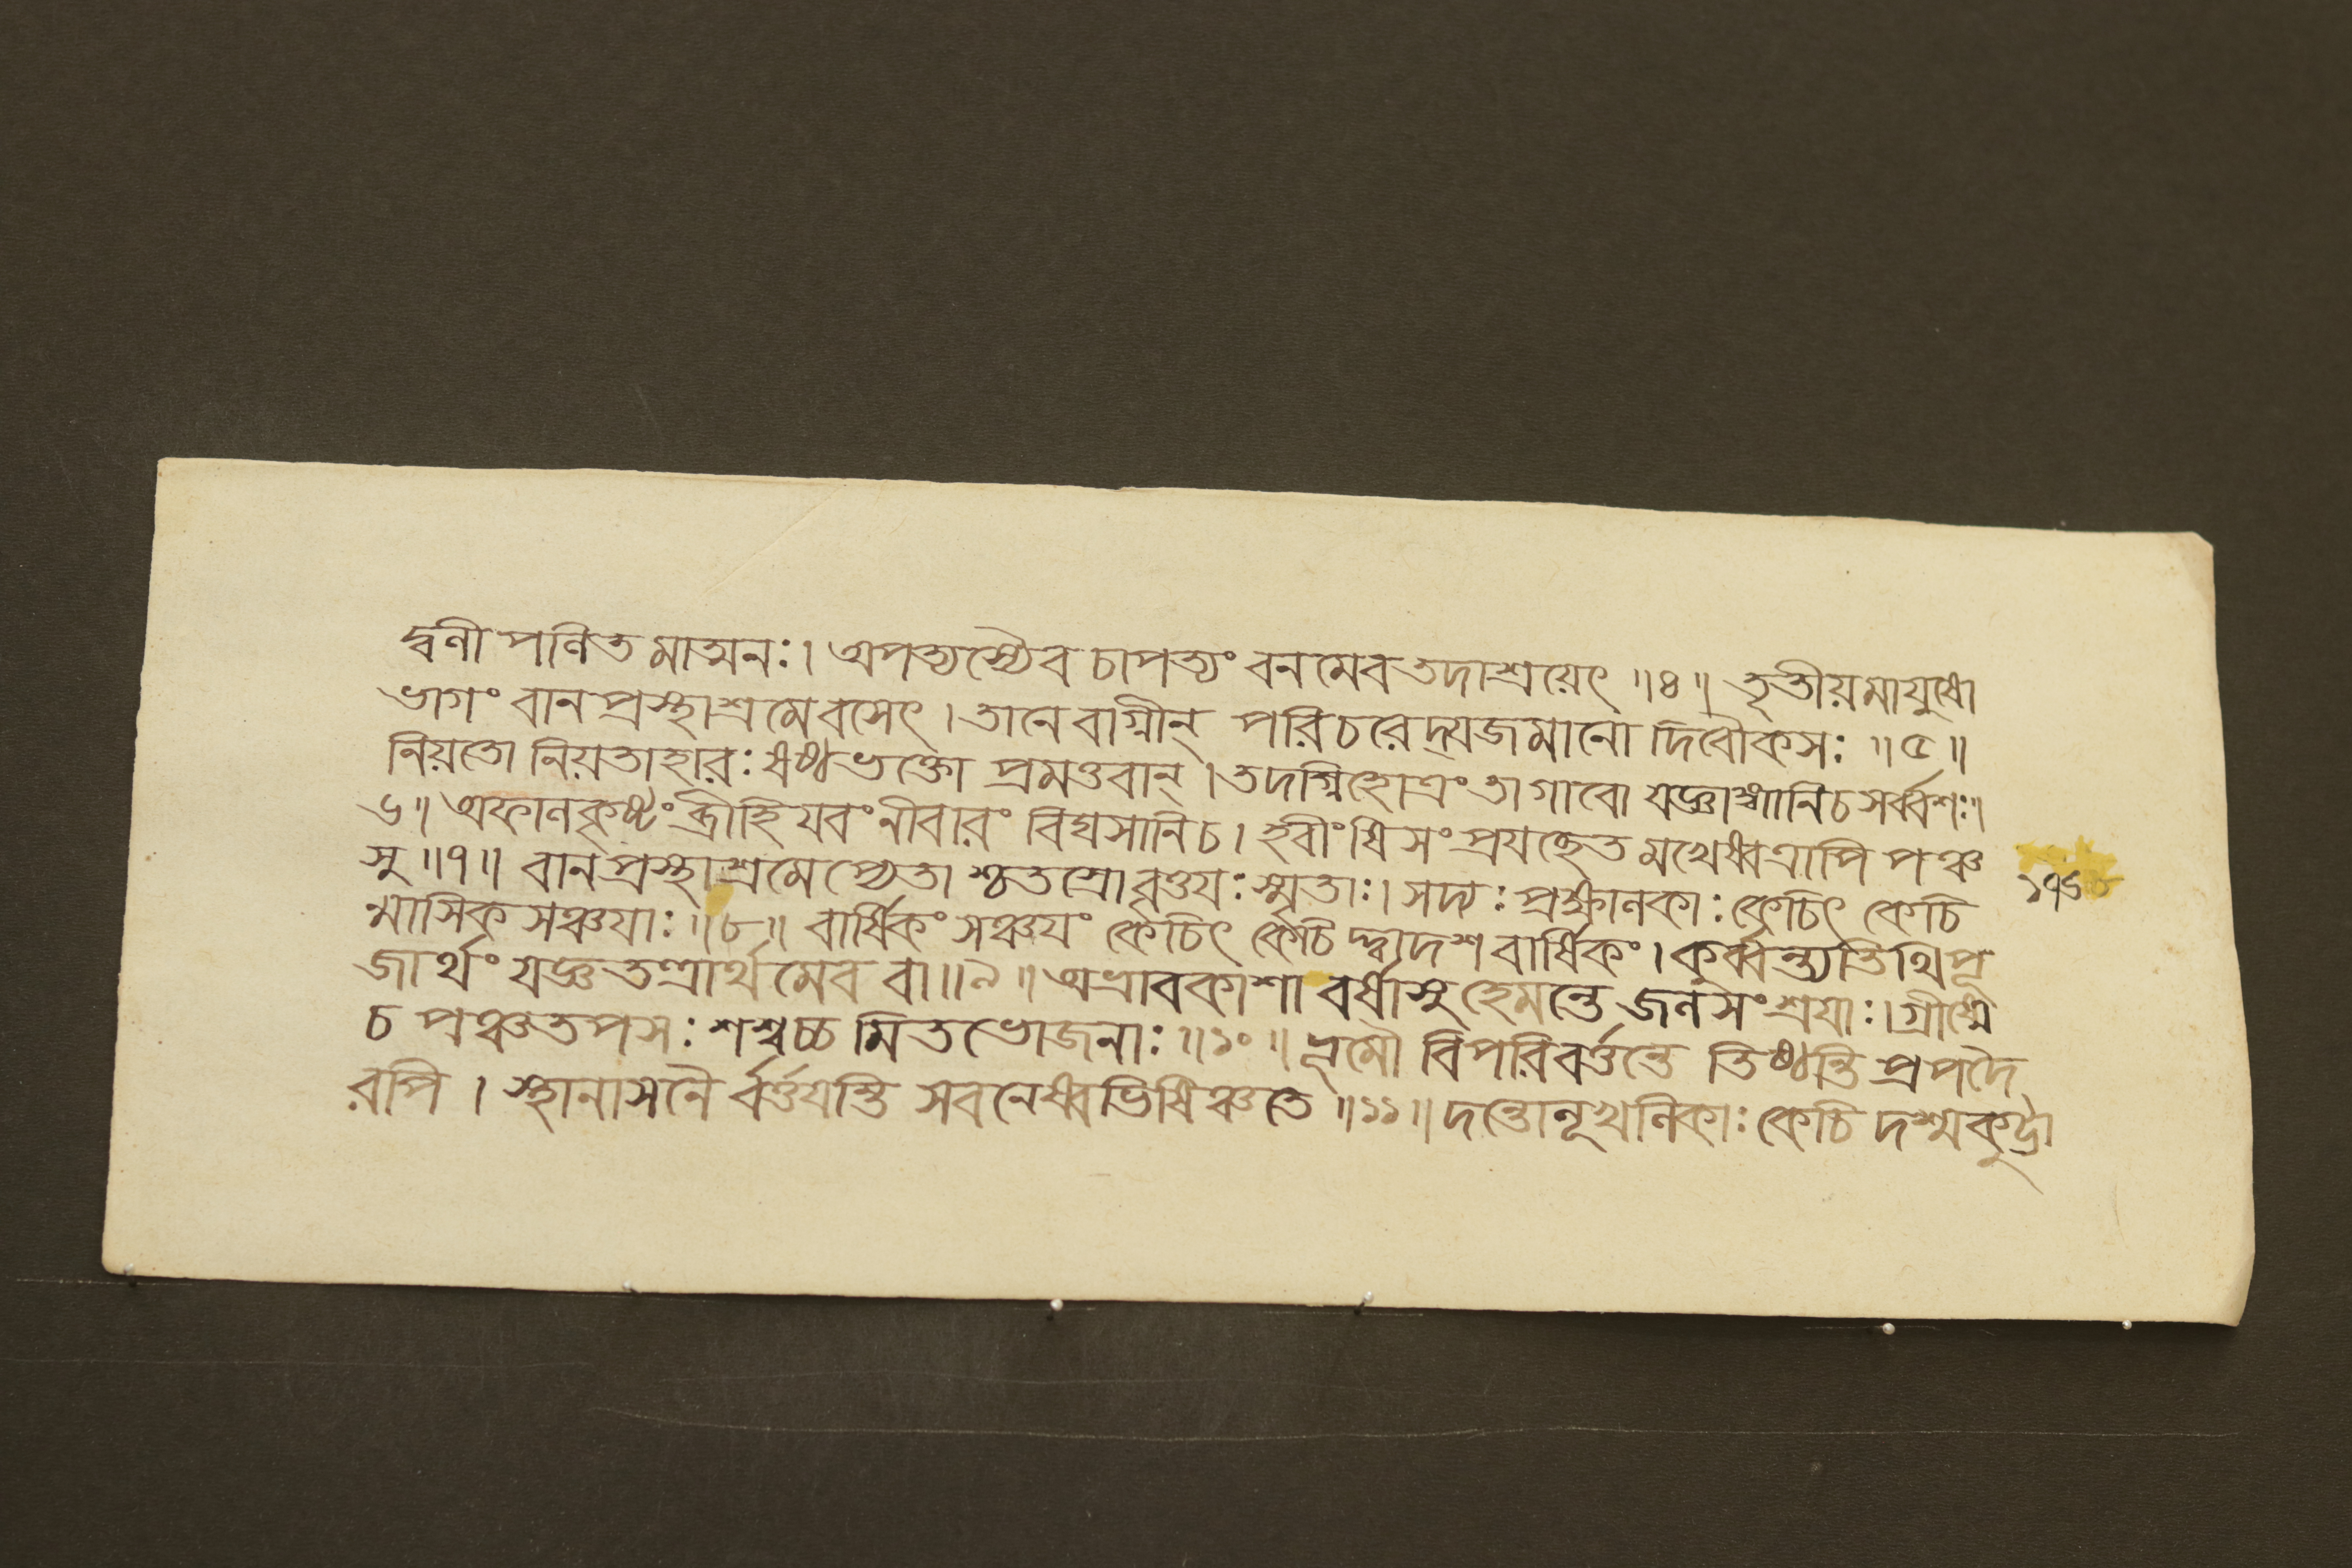 দ্বলী পলিত মাত্মনঃ। অপত্যস্যৈব চাপত্যং বনমেব তদাশ্রয়েৎ ॥৪॥ তৃতীয়মাযুষো
ভাগং বানপ্রস্থাশ্রমে বসেৎ। তানেবাগ্নীন্ পরিচরেদ্যজমানো দিবৌকসঃ ॥৫॥
নিয়তো নিয়তাহারঃ ষষ্ঠভক্তো প্রমত্তবান্। তদগ্নিহোত্রং তা গাবো যজ্ঞাঙ্গানি চ সর্ব্বশঃ॥
৬॥ অফালকৃষ্টং ব্রীহিযবং নীবারং বিঘসানি চ। হবীংষি সংপ্রযচ্ছেত মখেষ্বত্রাপি পঞ্চ
সু ॥৭॥ বানপ্রস্থাশ্রমেপ্যেতা শ্চতস্রো বৃত্তযঃ স্মৃতাঃ। সদ্যঃ প্রক্ষালকাঃ কেচিৎ কেচি
ন্মাসিক সঞ্চযাঃ ॥৮॥ বার্ষিকং সঞ্চযং কেচিৎ কেচিদ্দ্বাদশবার্ষিকং। কুর্ব্বন্ত্যতিথিপূ
জার্থং যজ্ঞতন্ত্রার্থমেব বা॥৯॥ অভ্রাবকাশা বর্ষাসু হেমন্তে জলসংশ্রযাঃ। গ্রীষ্মে
চ পঞ্চতপসঃ শশ্বচ্চ মিতভোজনাঃ ॥১০॥ ভূমৌ বিপরিবর্ত্তন্তে তিষ্ঠন্তি প্রপদৈ
রপি। স্থানাসনৈ র্বর্ত্তযন্তি সবনেষ্বভিষিঞ্চতে ॥১১॥ দন্তোলূখলিকাঃ কেচি দশ্মকুট্টা